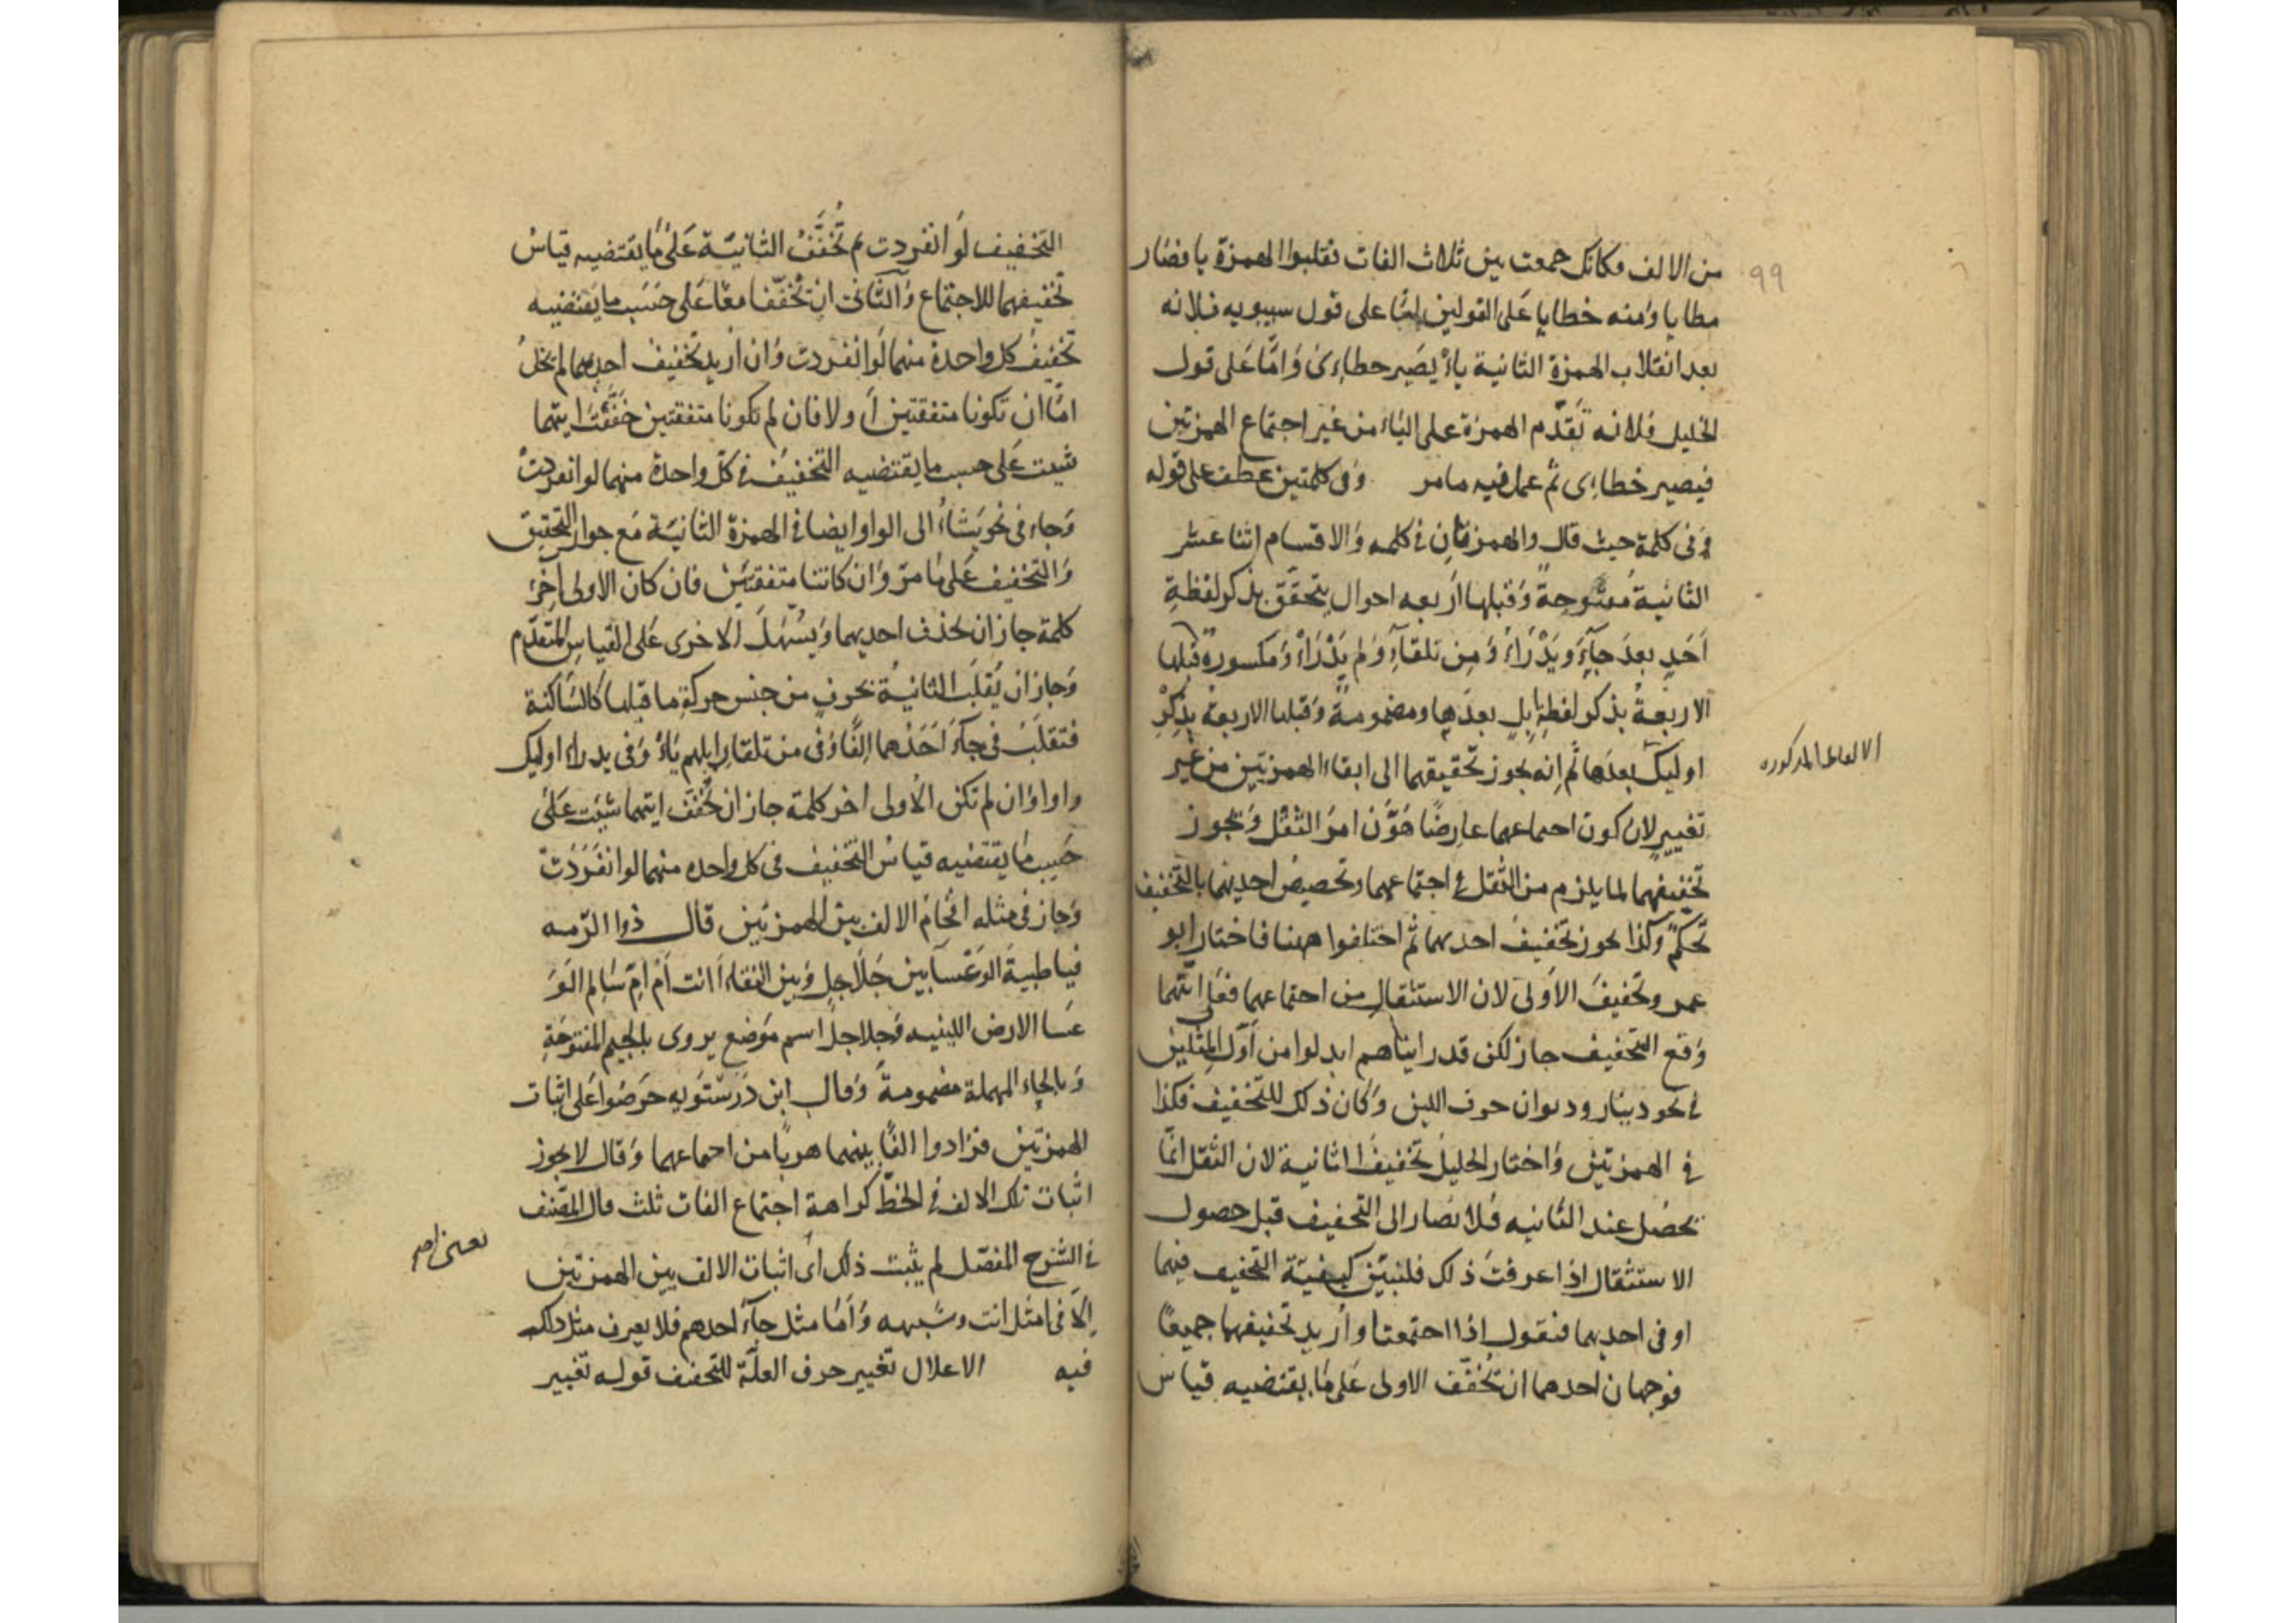 من الالف فكانك جمعت بين ثلاث الفات فقلبوا الهمزة يا فصار
99
مطايا ومنه خطايا على القولين امّا على قول سيبويه فلانه
بعد انقلاب الهمزة الثانية ياء يصير خطاءى وامّا على قول
الخليل فلانه تقدّم الهمزة على الياء من غير اجتماع الهمزتين
فيصير خطاءى ثم عمل فيه ما مر وفى كلمتين عطف على قوله
وفى كلمة حيث قال والهمزتان فى كلمه والاقسام اثنا عشر
الثانية مفتوحة وقبلها اربعه احوال يتحقّق بذكر لفظة
أحد بعد جآء ويدرأ ومن تلقآء ولم يدرأ ومكسورة قبلها
الاربعة بذكر لفظة ابل بعدها ومضمومة وقبلها الاربعة بذكر
اوليك بعدها ثم انه يجوز تحقيقهما الى ابقاء الهمزتين من غير
الالفاظ المذكوره
تغيير لان كون اجتماعهما عارضا هوّن امر الثقل ويجوز
تخفيفهما لما يلزم من الثقل فى اجتماعهما وتخصيص احديهما بالتخفيف
تحكم وكذا يجوز تخفيف احديهما ثم اختلفوا ههنا فاختار ابو
عمرو تخفيف الاولى لان الاستثقال من اجتماعهما فعلى ايّتهما
وقع التخفيف جاز لكن قد رايناهم ابدلوا من اوّل المثلين
فى نحو دينار وديوان حرف اللين وكان ذلك للتخفيف فكذا
فى الهمزتين واختار الخليل تخفيف الثانية لان الثقل انّما
يحصل عند الثانيه فلا يصار الى التخفيف قبل حصول
الاستثقال اذا عرفت ذلك فلنبيّن كيفيّة التخفيف فيهما
او فى احديهما فنقول اذا اجتمعتا واريد تخفيفهما جميعا
فوجهان احدهما ان تخفّف الاولى على ما يقتضيه قياس
التخفيف لو انفردت ثم تخفّف الثانيّة على ما يقتضيه قياس
تخفيفهما للاجتماع والثانى ان تخفّفا معا على حسب ما يقتضيه
تخفيف كل واحدة منهما لو انفردت وان اريد تخفيف احديهما لم يخل
امّا ان تكونا متفقتين أو لا فان لم تكونا متفقتين خفّفت ايتهما
شيت على حسب ما يقتضيه التخفيف فى كلّ واحدة منهما لو انفردت
وجاء فى نحو يشاء الى الواو ايضا فى الهمزة الثانيّة مع جواز التحقيق
والتخفيف على ما مرّ وان كانتا متفقتين فان كان الاولى آخر
كلمة جاز ان يحذف احديهما ويسهّل الاخرى على القياس المتقدّم
وجاز ان يقلب الثانية بحرف من جنس حركة ما قبلها كالسّاكنة
فتقلب فى جآء احدهما الفا وفى من تلقاء ابلهم ياء وفى يدراء اوليك
واوا وان لم تكن الاولى اخر كلمة جاز ان تخفّف ايتهما شيت على
حسب ما يقتضيه قياس التخفيف فى كل واحده منهما لو انفردت
وجاز فى مثله اقحام الالف بين الهمزتين قال ذوا الرّمه
فيا ظبية الوعسآ بين جلاجل وبين النقاء اانت أم امّ سالم الو
عسا الارض اللينيه وجلاجل اسم موضع يروى بالجيم المفتوحة
وبالحاء المهملة مضمومة وقال ابن درستويه حرضوا على اثبات
الهمزتين فزادوا الفا بينهما هربا من اجتماعهما وقال لا يجوز
اثبات تلك الالف فى الخطّ كراهة اجتماع الفات ثلث قال المصّنف
فى الشرح المفصّل لم يثبت ذلك اى اثبات الالف بين الهمزتين
الّا فى مثل اانت وشبهه وامّا مثل جآء احدهم فلا يعرف مثل ذلك
فيه الاعلال تغيير حرف العلّة للتخفيف قوله تغيير